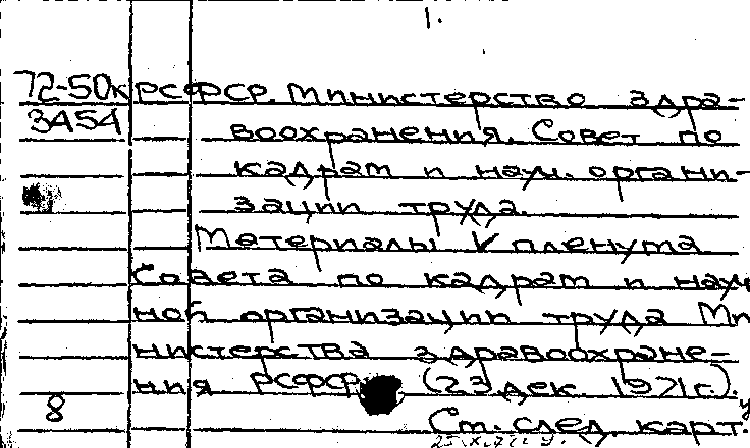 1.
72-50к РСФСР. Министерство здра-
3454 воохранения. Совет по
кадрам и науч. органи-
зации труда.
Материалы V пленума
Совета по кадрам и науч
ной организации труда Ми
нистерства здравоохране-
ния РСФСР (23 дек. 1971г.).
8 См. след. карт.